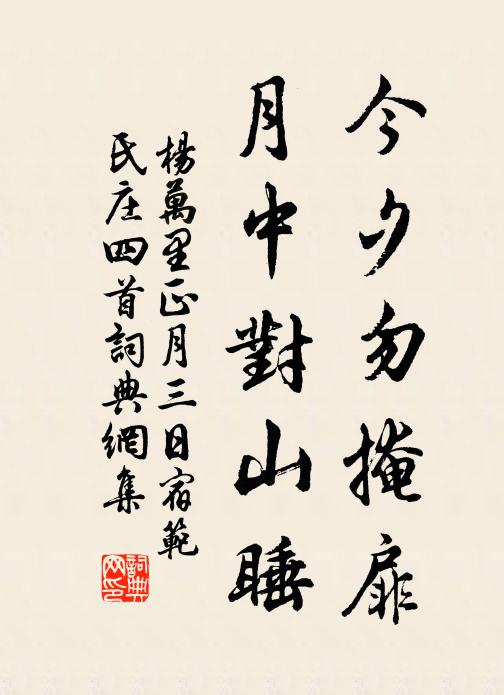 今夕勿掩扉
月中對山睡
楊萬里正月三日宿範
氏庄四首詞典網集
詞典網印